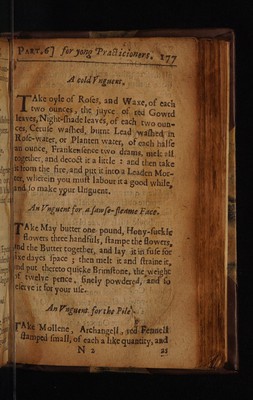 PART.6] for yong Practicioners. 177
A cold Vnguent.
TAke oyle of Roses, and Waxe, of each
two ounces, the juyce of red Gowrd
leaves, Night-shade leaves, of each two oun-
ces, Ceruse washed, burnt Lead washed in
Rose-water, or Planten water, of each halfe
an ounce, Frankensence two drams, melt all
together, and decoct it a little : and then take
it from the fire, and put it into a Leaden Mor-
ter, wherein you must labour it a good while,
and so make your Unguent.
An Vnguent for a sawse-fleame Face.
TAke May butter one pound, Hony-suckle
flowers three handfuls, stampe the flowers,
and the Butter together, and lay it in fuse for
sixe dayes space ; then melt it and straine it,
and put thereto quicke Brimstone, the weight
of twelve pence, finely powdred, and so
reserve it for your use.
An Vnguent for the Pile.
TAke Mollene, Archangell, red Fennell
stamped small, of each a like quantity, and
N 2 as